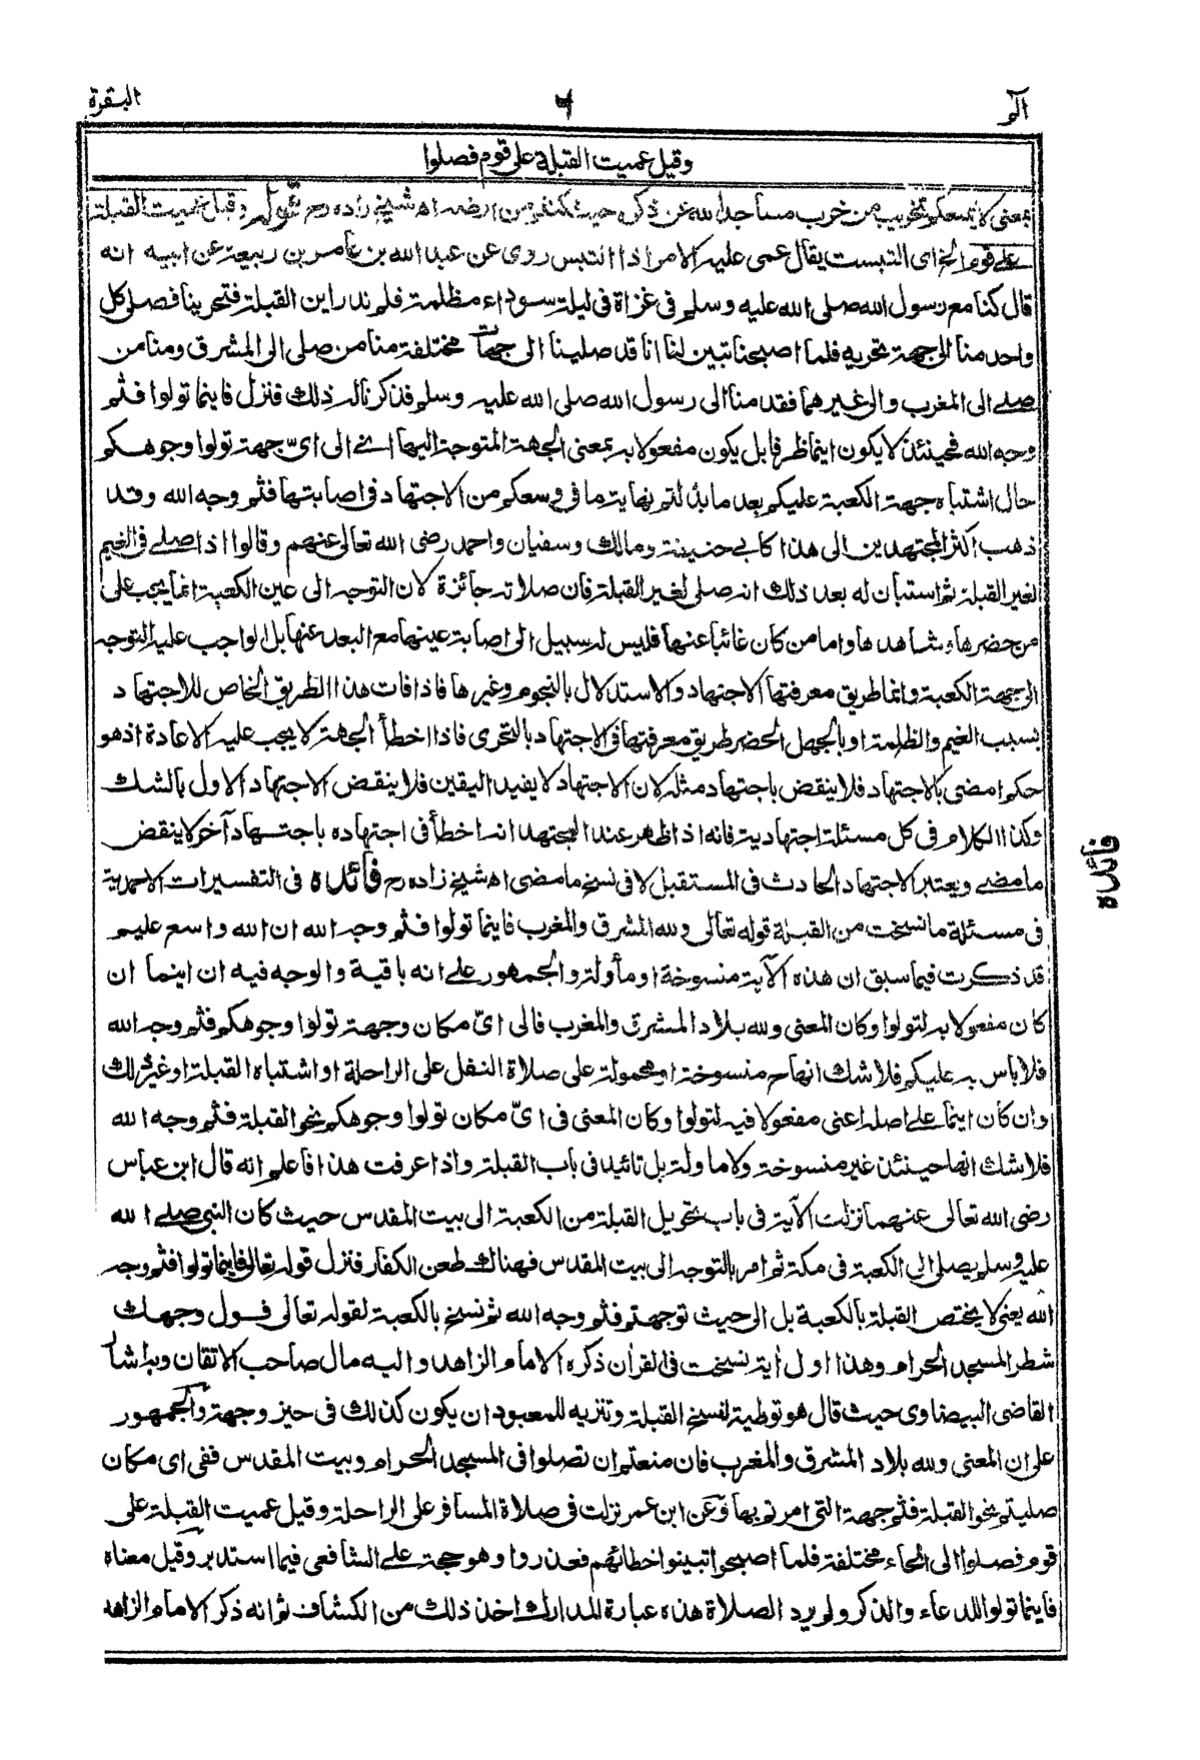 الٓمّٓ ٦ البقرة
وقيل عميت القبلة على قوم فصلوا
بمعنى لا يمنعكم تخريب من خرب مساجد الله عن ذكره حيث كنتم من ارضه اه شيخ زاده رح قوله وقيل عميت القبلة
على قوم الخ اى التبست يقال عمى عليه الامر اذا التبس روى عن عبد الله بن عامر بن ربيعة عن ابيه انه
قال كنا مع رسول الله صلى الله عليه وسلم فى غزاة فى ليلة سوداء مظلمة فلم ندر اين القبلة فتحرينا فصلى كل
واحد منا الى جهة تحريه فلما اصبحنا تبين لنا انا قد صلينا الى جهات مختلفة منا من صلى الى المشرق ومنا من
صلے الى المغرب والى غيرهما فقدمنا الى رسول الله صلى الله عليه وسلم فذكرنا له ذلك فنزل فاينما تولوا فثم
وجه الله فحينئذ لا يكون اينما ظرفا بل يكون مفعولا به بمعنى الجهة المتوجة اليها اے الى اىّ جهة تولوا وجوهكم
حال اشتباه جهة الكعبة عليكم بعد ما بذلتم نهاية ما فى وسعكم من الاجتهاد فى اصابتها فثم وجه الله وقد
ذهب اكثر المجتهدين الى هذا كابى حنيفة ومالك وسفيان واحمد رضى الله تعالى عنهم وقالوا اذا صلے فى الغيم
لغير القبلة ثم استبان له بعد ذلك انه صلى لغير القبلة فان صلاته جائزة لان التوجه الى عين الكعبة انما يجب على
من حضرها وشاهدها واما من كان غائبا عنها فليس له سبيل الى اصابة عينها مع البعد عنها بل الواجب عليه التوجه
الى جهة الكعبة وانما طريق معرفتها الاجتهاد والاستدلال بالنجوم وغيرها فاذا فات هذا الطريق الخاص للاجتهاد
بسبب الغيم والظلمة او بالجهل انحصر طريق معرفتها فى الاجتهاد بالتحرى فاذا اخطأ الجهة لا يجب عليه الاعادة اذ هو
حكم امضى بالاجتهاد فلا ينقض باجتهاد مثله لان الاجتهاد لا يفيد اليقين فلا ينقض الاجتهاد الاول بالشك
وكذا الكلام فى كل مسئلة اجتهادية فانه اذا ظهر عند المجتهد انه اخطأ فى اجتهاده باجتهاد آخر لا ينقض
ما مضے ويعتبر الاجتهاد الحادث فى المستقبل لا فى نسخ ما مضى اه شيخ زاده رح فائده فى التفسيرات الاحمدية
فى مسئلة ما نسخت من القبلة قوله تعالى ولله المشرق والمغرب فاينما تولوا فثم وجه الله ان الله واسع عليم
قد ذكرت فيما سبق ان هذه الآية منسوخة او مأولة والجمهور على انه باقية والوجه فيه ان اينما ان
كان مفعولا به لتولوا وكان المعنى ولله بلاد المشرق والمغرب فالى اىّ مكان وجهة تولوا وجوهكم فثم وجه الله
فلا باس به عليكم فلا شك انها ح منسوخة او محمولة على صلاة النفل على الراحلة او اشتباه القبلة او غير ذلك
وان كان اينما على اصله اعنى مفعولا فيه لتولوا وكان المعنى فى اىّ مكان تولوا وجوهكم نحو القبلة فثم وجه الله
فلا شك انها حينئذ غير منسوخة ولا ماولة بل تائيد فى باب القبلة واذا عرفت هذا فاعلم انه قال ابن عباس
رضى الله تعالى عنهما نزلت الآية فى باب تحويل القبلة من الكعبة الى بيت المقدس حيث كان النبى صلے الله
عليه وسلم يصلى الى الكعبة فى مكة ثم امر بالتوجه الى بيت المقدس فهناك طعن الكفار فنزل قوله تعالى فاينما تولوا فثم وجه
الله يعنى لا يختص القبلة بالكعبة بل الى حيث توجهتم فثم وجه الله ثم نسخ بالكعبة لقوله تعالى فول وجهك
شطر المسجد الحرام وهذا اول اٰية نسخت فى القراٰن ذكره الامام الزاهد واليه مال صاحب الاتقان وبه اشار
القاضى البيضاوى حيث قال هو توطية لنسخ القبلة وتنزيه للمعبود ان يكون كذلك فى حيز وجهة والجمهور
على ان المعنى ولله بلاد المشرق والمغرب فان منعتم ان تصلوا فى المسجد الحرام وبيت المقدس ففى اى مكان
صليتم نحو القبلة فثم جهة التى امرتم بها وعن ابن عمر نزلت فى صلاة المسافر على الراحلة وقيل عميت القبلة على
قوم فصلوا الى انحاء مختلفة فلما اصبحوا تبينوا خطائهم فعذروا وهو حجة على الشافعى فيما استدبر وقيل معناه
فاينما تولوا للدعاء والذكر ولم يرد الصلاة هذه عبارة المدارك اخذ ذلك من الكشاف ثم انه ذكر الامام الزاهد
فائده